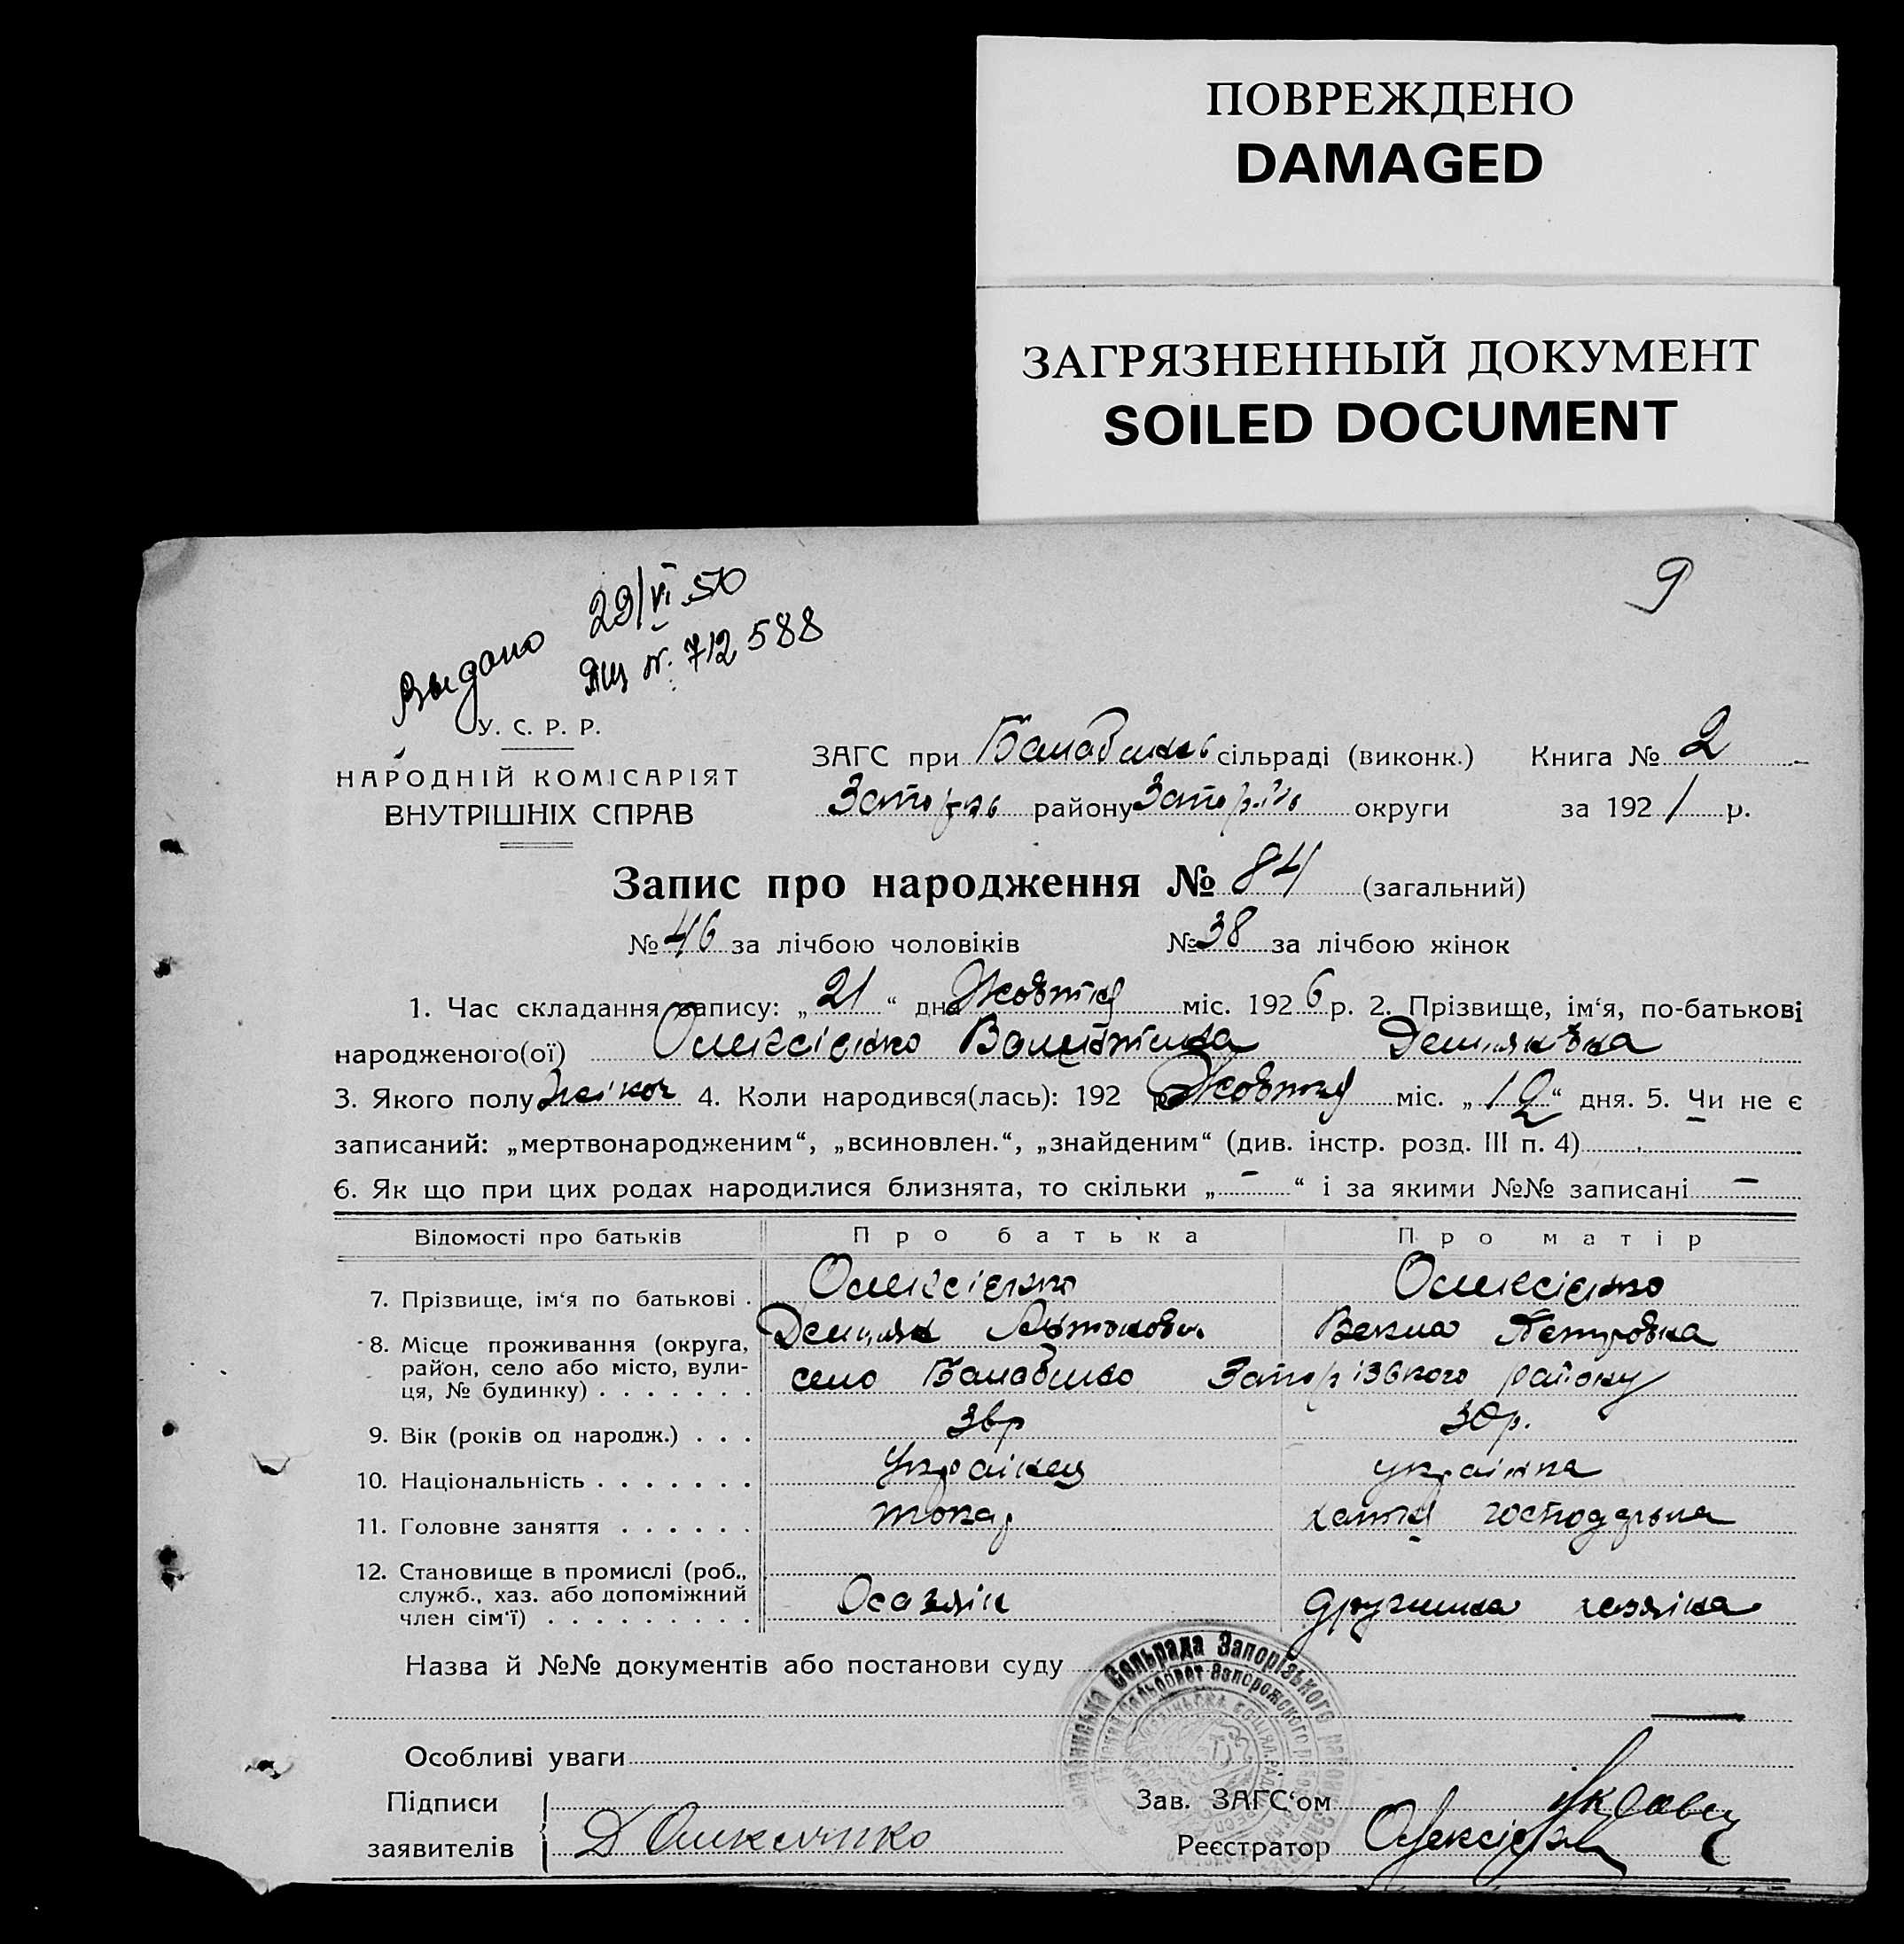 ПОВРЕЖДЕНО
DAMAGED
ЗАГРЯЗНЕННЫЙ ДОКУМЕНТ
SOILED DOCUMENT
9
Выдано 29/VI 50
№ 712588
У. С. Р. Р.
НАРОДНІЙ КОМІСАРІЯТ
ВНУТРІШНІХ СПРАВ
ЗАГС при Балабинк сільраді (виконк.) Книга № 2
району округи за 1921 р.
Запис про народження № 84 (загальний)
№ 46 за лічбою чоловіків № 38 за лічбою жінок
1. Час складання запису: „21“ дня Жовтня міс. 1926 р. 2. Прізвище, ім‘я, по-батькові
народженого(ої) Олексієнко Валентина Демянівна
3. Якого полу жіноч 4. Коли народився(лась): 192 р Жовтня міс. „12“ дня. 5. Чи не є
записаний: „мертвонародженим“, „всиновлен.“, „знайденим“ (див. інстр. розд. III п. 4)
6. Як що при цих родах народилися близнята, то скільки „ – “ і за якими №№ записані –
Відомості про батьків Про батька Про матір
7. Прізвище, ім‘я по батькові . Олексієнко Олексієнко
Демьян Антонович Векла Петровна
8. Місце проживання (округа,
район, село або місто, вули-
ця, № будинку) . . . . . . . село Балабино Запорізького району
9. Вік (років од народж.) . . . 36р 30р.
10. Національність . . . . . . . Українец українка
11. Головне заняття . . . . . . токар хатня господарька
12. Становище в промислі (роб.,
служб., хаз. або допоміжний
член сім‘ї) . . . . . . . . . дружина хазяїна
Назва й №№ документів або постанови суду
Особливі уваги
Підписи
заявителів
Д Олексієнко
Зав. ЗАГС‘ом
Реєстратор
Сельрада Запорізького